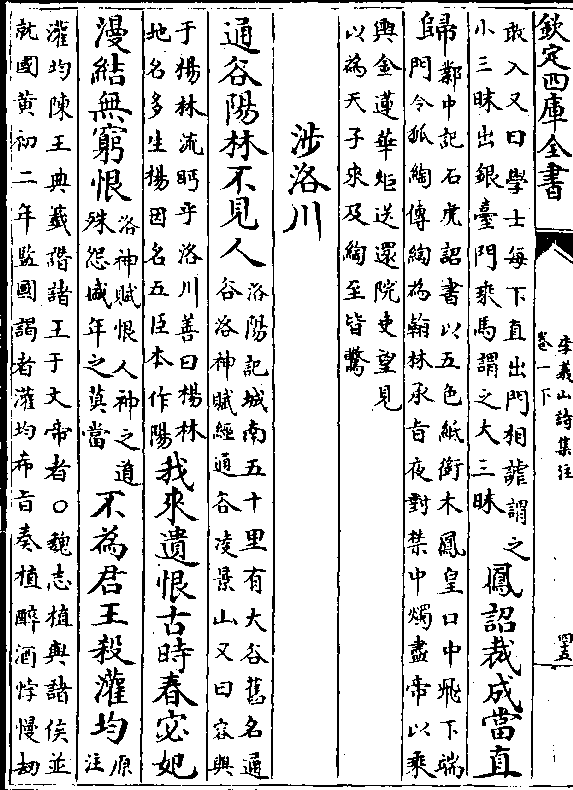 欽定四庫全書
李義山詩集注
卷一下
四五
敢入又曰學士每下直出門相謔謂之
小三昧出銀臺門乘馬謂之大三昧
鳳詔裁成當直
歸
鄴中記石虎詔書以五色紙銜木鳳皇口中飛下端
門令狐綯傳綯為翰林承旨夜對禁中燭盡帝以乘
輿金蓮華炬送還院吏望見
以為天子來及綯至皆驚
涉洛川
通谷陽林不見人
洛陽記城南五十里有大谷舊名通
谷洛神賦經通谷凌景山又曰容與
于楊林流眄乎洛川善曰楊林
地名多生楊因名五臣本作陽
我來遺恨古時春宓妃
漫結無窮恨
洛神賦恨人神之道
殊怨盛年之莫當
不為君王殺灌均
原
注
灌均陳王典籤譖諸王于文帝者○魏志植與諸侯並
就國黃初二年監國謁者灌均希旨奏植醉酒悖慢劫